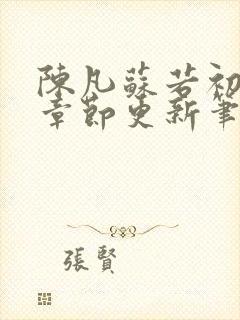 陳凡蘇若初
章節更新筆
張賢